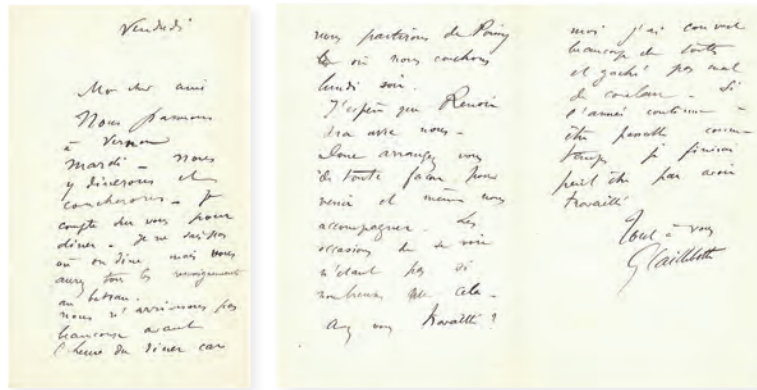 Vendredi
Mon cher ami
Nous passerons
à Vernon
mardi - nous
y dinerons et
coucherons. Je
compte sur vous pour
diner. Je ne sais pas
où on dine mais vous
aurez tous les renseignements
au bateau.
nous n'arriverons pas
beaucoup avant
l'heure du diner car
nous partirons de Poissy
où nous couchons
lundi soir.
J'espère que Renoir
sera avec nous -
Donc arrangez vous
de toute façon pour
venir et même nous
accompagner. Les
occasions de se voir
n'étant pas si
nombreuses que cela.
Avez vous travaillé ?
moi j'ai couvert
beaucoup de toiles
et gaché pas mal
de couleur. Si
l'année continue à
être passable comme
temps je finirai
peut être par avoir
travaillé
Tout à vous
G Caillebotte